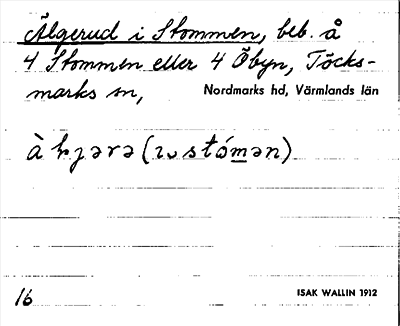 Älgerud i Stommen, beb. å
4 Stommen eller 4 Öbyn, Töcks-
marks sn, Nordmarks hd, Värmlands län
16
ISAK WALLIN 1912